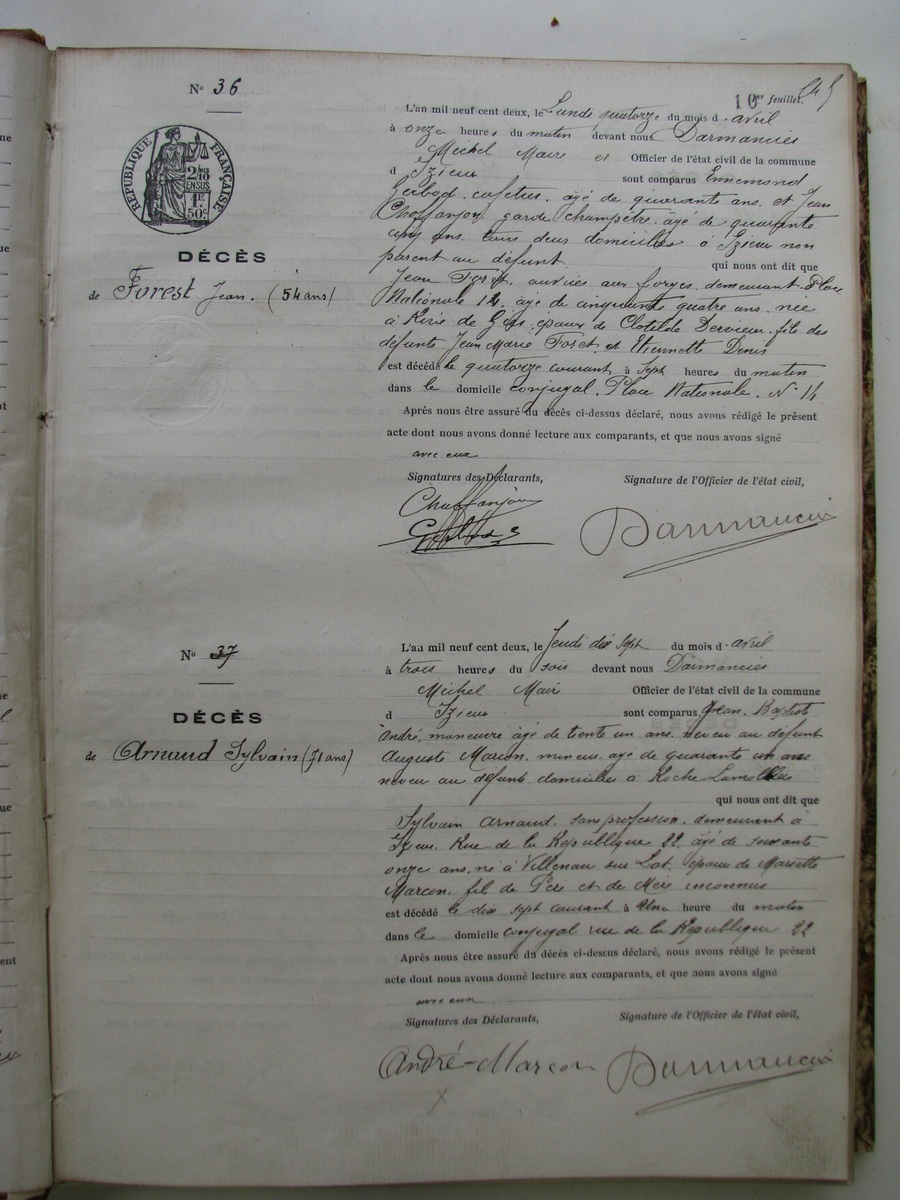 10er feuillet.
N° 36
RÉPUBLIQUE FRANÇAISE
2/10 EN SUS
1F. 50c
DÉCÈS
de Forest Jean. (54 ans)
L'an mil neuf cent deux, le Lundi quatorze du mois d'avril
à onze heures du matin devant nous Darmancier
Michel Maire Officier de l'état civil de la commune
d Izieux sont comparus Ennemond
Gerbod. cafetier. âgé de quarante ans. et Jean
Choffanjoy garde champêtre. âgé de quarante
cinq ans. tous deux domiciliés à Izieux non
parent au défunt qui nous ont dit que
Jean Forest. ouvrier aux forges. demeurant Place
Nationale 14. âgé de cinquante quatre ans. née
à Rive de Gier. époux de Clotilde Dervieux. fils des
défunts Jean Marie Foret. et Etiennette Denis
est décédé le quatorze courant à sept heures du matin
dans le domicile conjugal. Place Nationale. N° 14
Après nous être assuré du décès ci-dessus déclaré, nous avons rédigé le présent
acte dont nous avons donné lecture aux comparants, et que nous avons signé
avec eux
Signatures des Déclarants, Signature de l'Officier de l'état civil,
Darmancier
N° 37
DÉCÈS
de Arnaud Sylvain (71 ans)
L'an mil neuf cent deux, le Jeudi dix sept du mois d'avril
à trois heures du soir devant nous Darmancier
Michel Maire Officier de l'état civil de la commune
d Izieux sont comparus, Jean. Baptiste
André, manœuvre âgé de trente un ans. neveu au défunt
Auguste Marcon. mineur. agé de quarante un ans
neveu au défunt domiciliés à Roche Lamolière
qui nous ont dit que
Sylvain Arnaud. sans profession. demeurant à
Izieux. Rue de la République 22. âgé de soixante
onze ans. né à Villenau sur Lot. époux de Mariette
Marcon. fils de Père et de Mère inconnus
est décédé le dix sept courant à Une heure du matin
dans le domicile conjugal rue de la République 22
Après nous être assuré du décès ci-dessus déclaré, nous avons rédigé le présent
acte dont nous avons donné lecture aux comparants, et que nous avons signé
avec eux
Signatures des Déclarants, Signature de l'Officier de l'état civil,
André - Marcon Darmancier